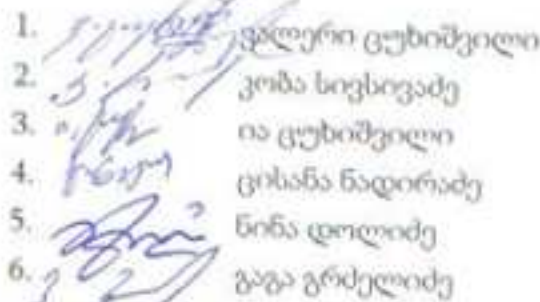 1. ვალერი ცუხიშვილი
2. კობა სივსივაძე
3. ია ცუხიშვილი
4. ცისანა ნადირაძე
5. ნინა დოლიძე
6. გაგა გრძელიძე